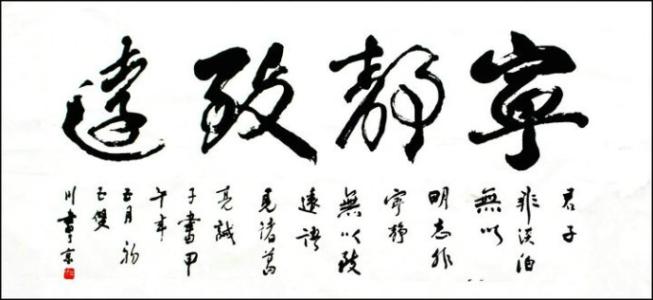 寧靜致遠
君子
非淡泊
無以
明志非
寧靜
無以致
遠語
見諸葛
亮誡
子書甲
午年
五月初
川書京